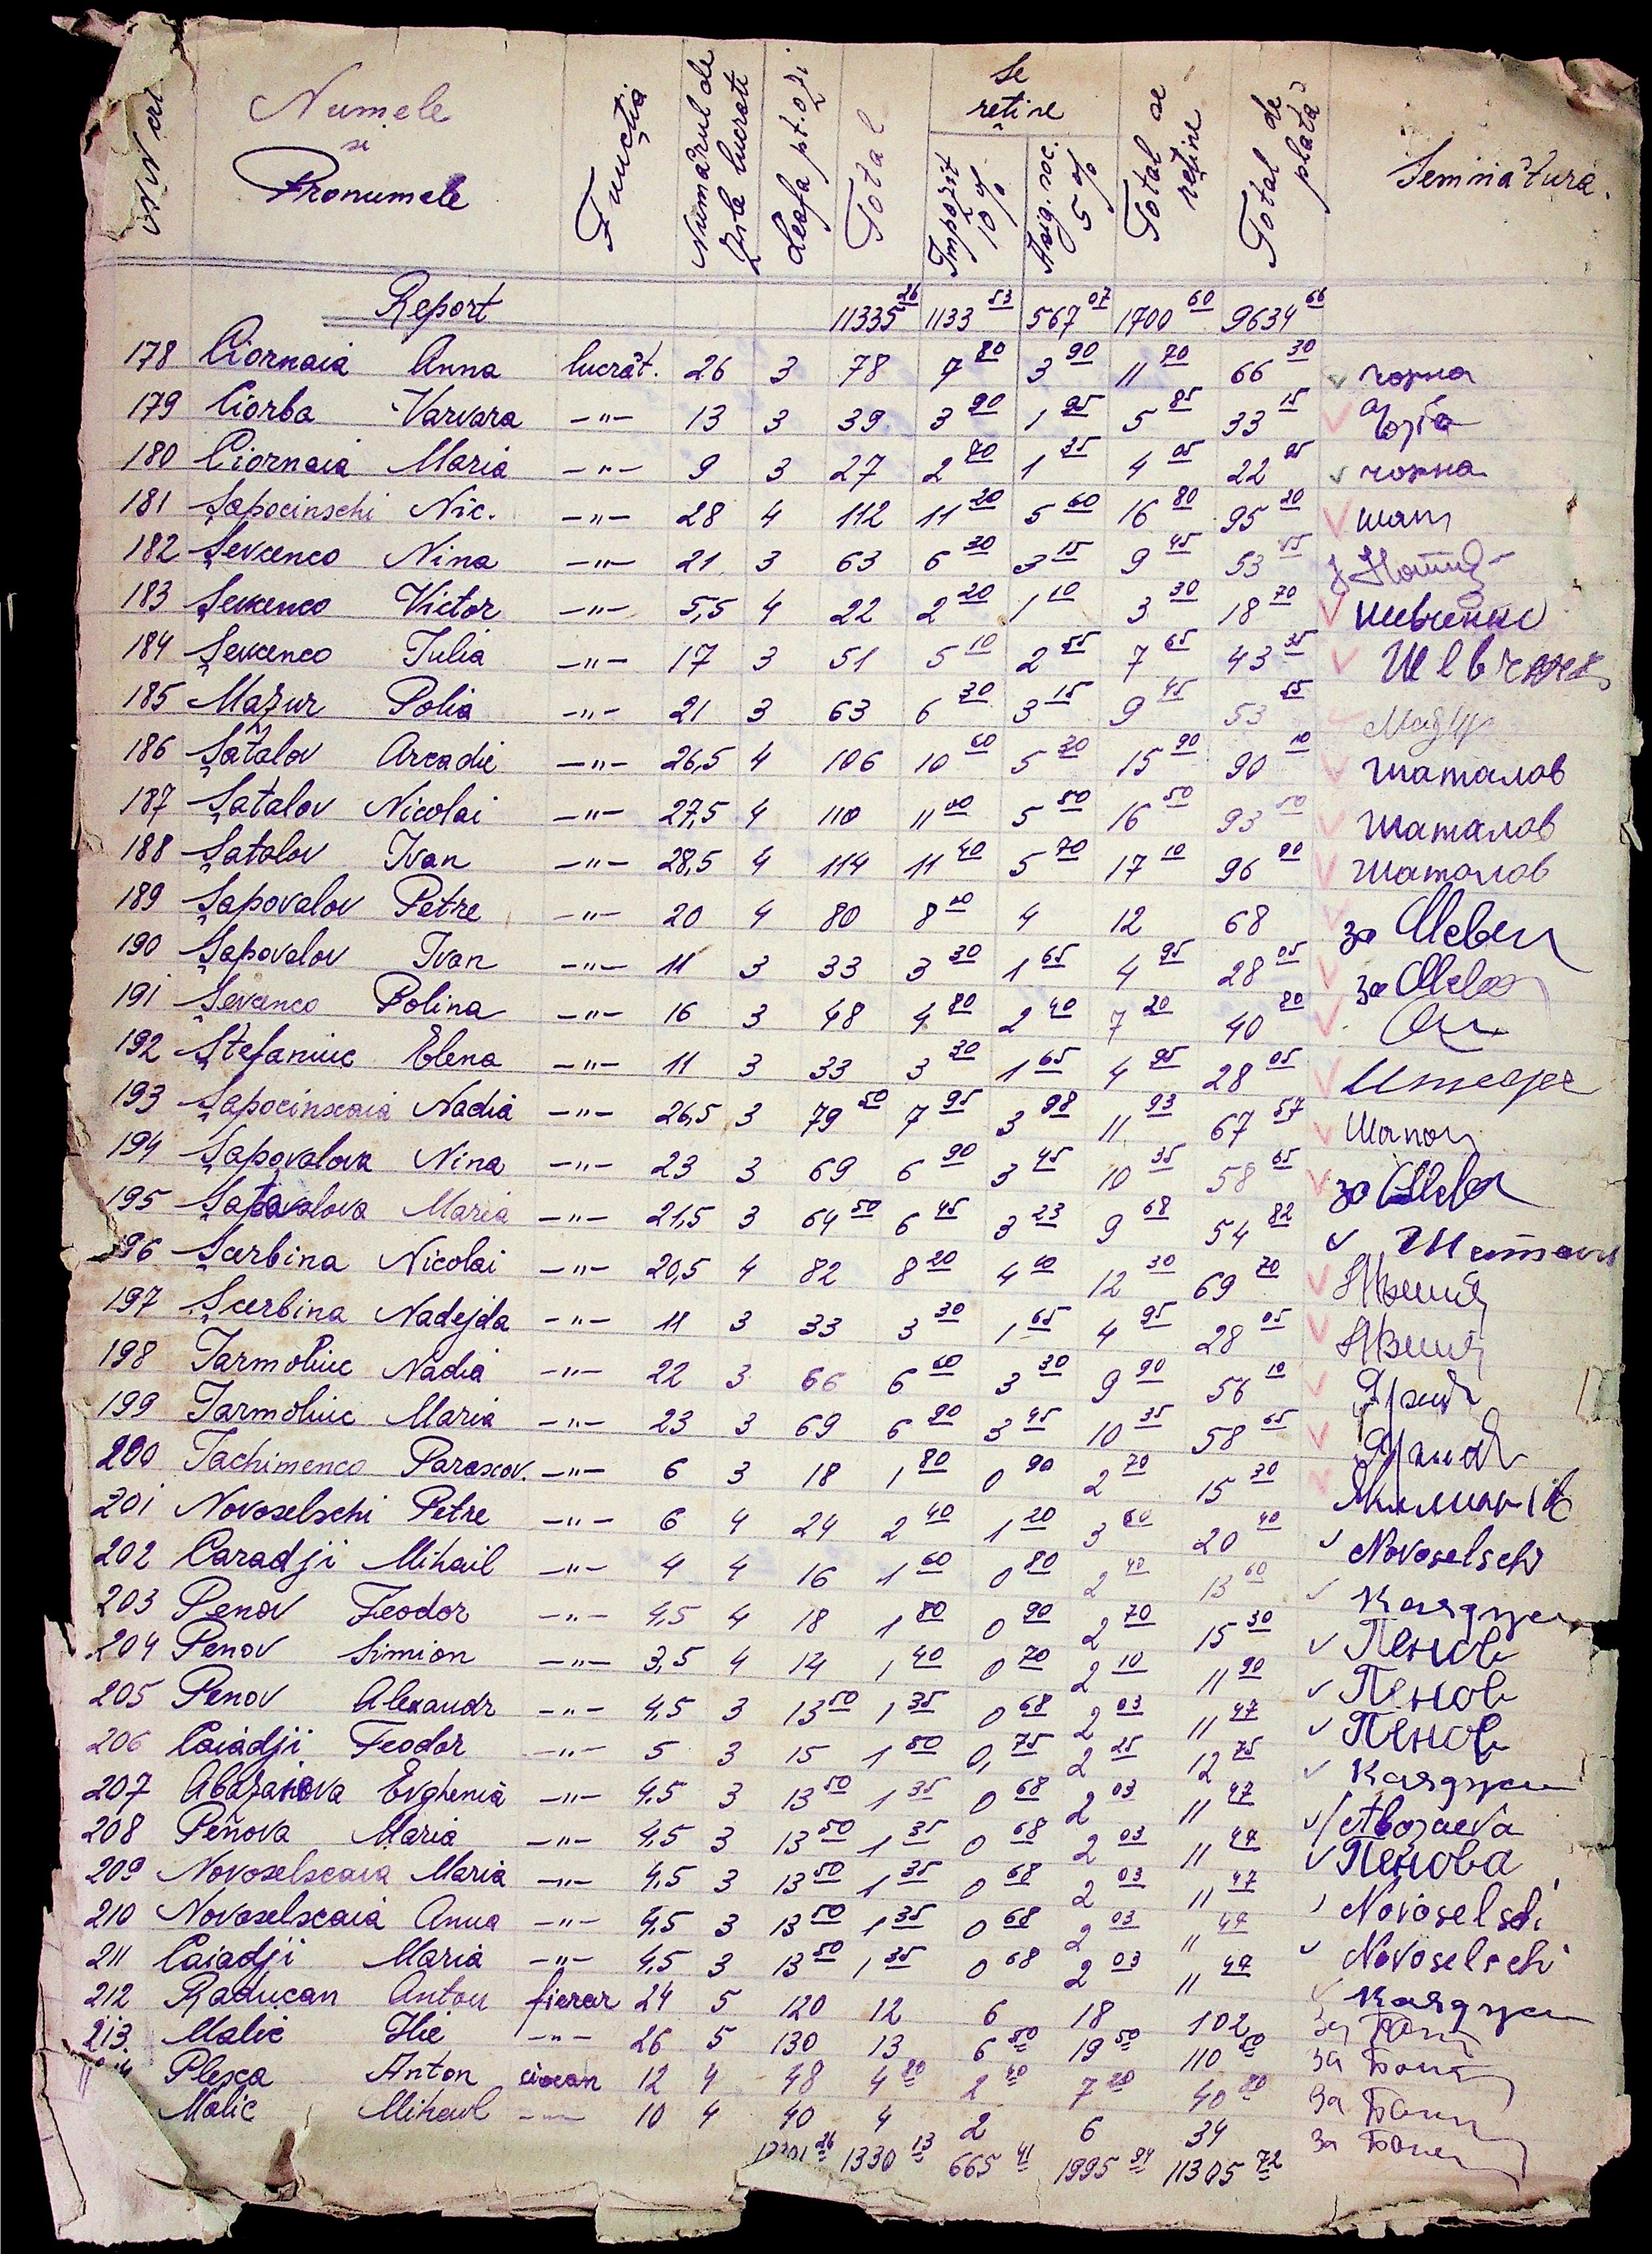 Numele
si
Pronumele
Funcția
Numărul de zile lucrate
Leafa pt. o zi
Total
Se reține
Impozit 10%
Asig. soc. 5%
Total de reține
Total de plată
Semnătura.
Report 11335 26 1133 53 567 07 1700 60 9634 66
178 Ciornaia Anna lucrăt. 26 3 78 7 80 3 90 11 70 66 30 чорна
179 Ciorba Varvara -"- 13 3 39 3 90 1 95 5 85 33 15
180 Ciornaia Maria -"- 9 3 27 2 70 1 35 4 05 22 95 чорна
181 Șapocinschi Nic. -"- 28 4 112 11 20 5 60 16 80 95 20 шап
182 Șevcenco Nina -"- 21 3 63 6 30 3 15 9 45 53 55
183 Șevcenco Victor -"- 5,5 4 22 2 20 1 10 3 30 18 70 шевченко
184 Șevcenco Iulia -"- 17 3 51 5 10 2 55 7 65 43 35
185 Mazur Polia -"- 21 3 63 6 30 3 15 9 45 53 55 Мазур
186 Șatalov Arcadie -"- 26,5 4 106 10 60 5 30 15 90 90 10 Шаталов
187 Șatalov Nicolai -"- 27,5 4 110 11 00 5 50 16 50 93 50 Шаталов
188 Șatalov Ivan -"- 28,5 4 114 11 40 5 70 17 10 96 90 Шаталов
189 Șapovalov Petre -"- 20 4 80 8 00 4 12 68 за
190 Șapovalov Ivan -"- 11 3 33 3 30 1 65 4 95 28 05 за
191 Șevcenco Polina -"- 16 3 48 4 80 2 40 7 20 40 80
192 Ștefaniuc Elena -"- 11 3 33 3 30 1 65 4 95 28 05
193 Șapocinscaia Nadia -"- 26,5 3 79 50 7 95 3 98 11 93 67 57 Шапоч
194 Șapovalova Nina -"- 23 3 69 6 90 3 45 10 35 58 65 за
195 Șatavalova Maria -"- 21,5 3 64 50 6 45 3 23 9 68 54 82
196 Șcerbina Nicolai -"- 20,5 4 82 8 20 4 10 12 30 69 70
197 Șcerbina Nadejda -"- 11 3 33 3 30 1 65 4 95 28 05
198 Iarmoliuc Nadia -"- 22 3 66 6 60 3 30 9 90 56 10
199 Iarmoliuc Maria -"- 23 3 69 6 90 3 45 10 35 58 65
200 Iachimenco Parascov. -"- 6 3 18 1 80 0 90 2 70 15 30
201 Novoselschi Petre -"- 6 4 24 2 40 1 20 3 60 20 40 Novoselschi
202 Caradji Mihail -"- 4 4 16 1 60 0 80 2 40 13 60
203 Penov Feodor -"- 4,5 4 18 1 80 0 90 2 70 15 30 Пенов
204 Penov Simion -"- 3,5 4 14 1 40 0 70 2 10 11 90 Пенов
205 Penov Alexandr -"- 4,5 3 13 50 1 35 0 68 2 03 11 47 Пенов
206 Caiadji Feodor -"- 5 3 15 1 50 0, 75 2 25 12 75
207 Abazanova Evghenia -"- 4,5 3 13 50 1 35 0 68 2 03 11 47
208 Penova Maria -"- 4,5 3 13 50 1 35 0 68 2 03 11 47 Пенова
209 Novoselscaia Maria -"- 4,5 3 13 50 1 35 0 68 2 03 11 47 Novoselschi
210 Novoselscaia Anna -"- 4,5 3 13 50 1 35 0 68 2 03 11 47 Novoselschi
211 Caiadji Maria -"- 4,5 3 13 50 1 35 0 68 2 03 11 47
212 Raducan Anton fierar 24 5 120 12 6 18 102 За
213. Malic Ilie -"- 26 5 130 13 6 50 19 50 110 50 за
Pleșca Anton ciocan 12 4 48 4 80 2 40 7 20 40 80 за
Malic Mihail -"- 10 4 40 4 2 6 34 за
13301 26 1330 13 665 41 1995 54 11305 72